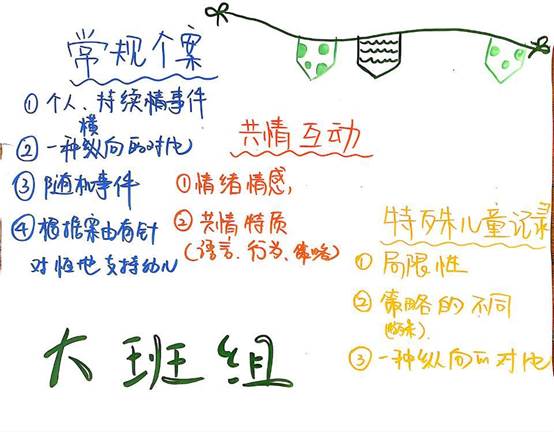 常规个案
①个人、持续情事件
横
②一种纵向的对比
③随机事件
④根据案由有针
对性地支持幼儿
共情互动
①情绪情感,
②共情特质
(语言、行为、策略)
特殊儿童记录
①局限性
②策略的不同
(特殊).
③一种纵向的对比
大班组